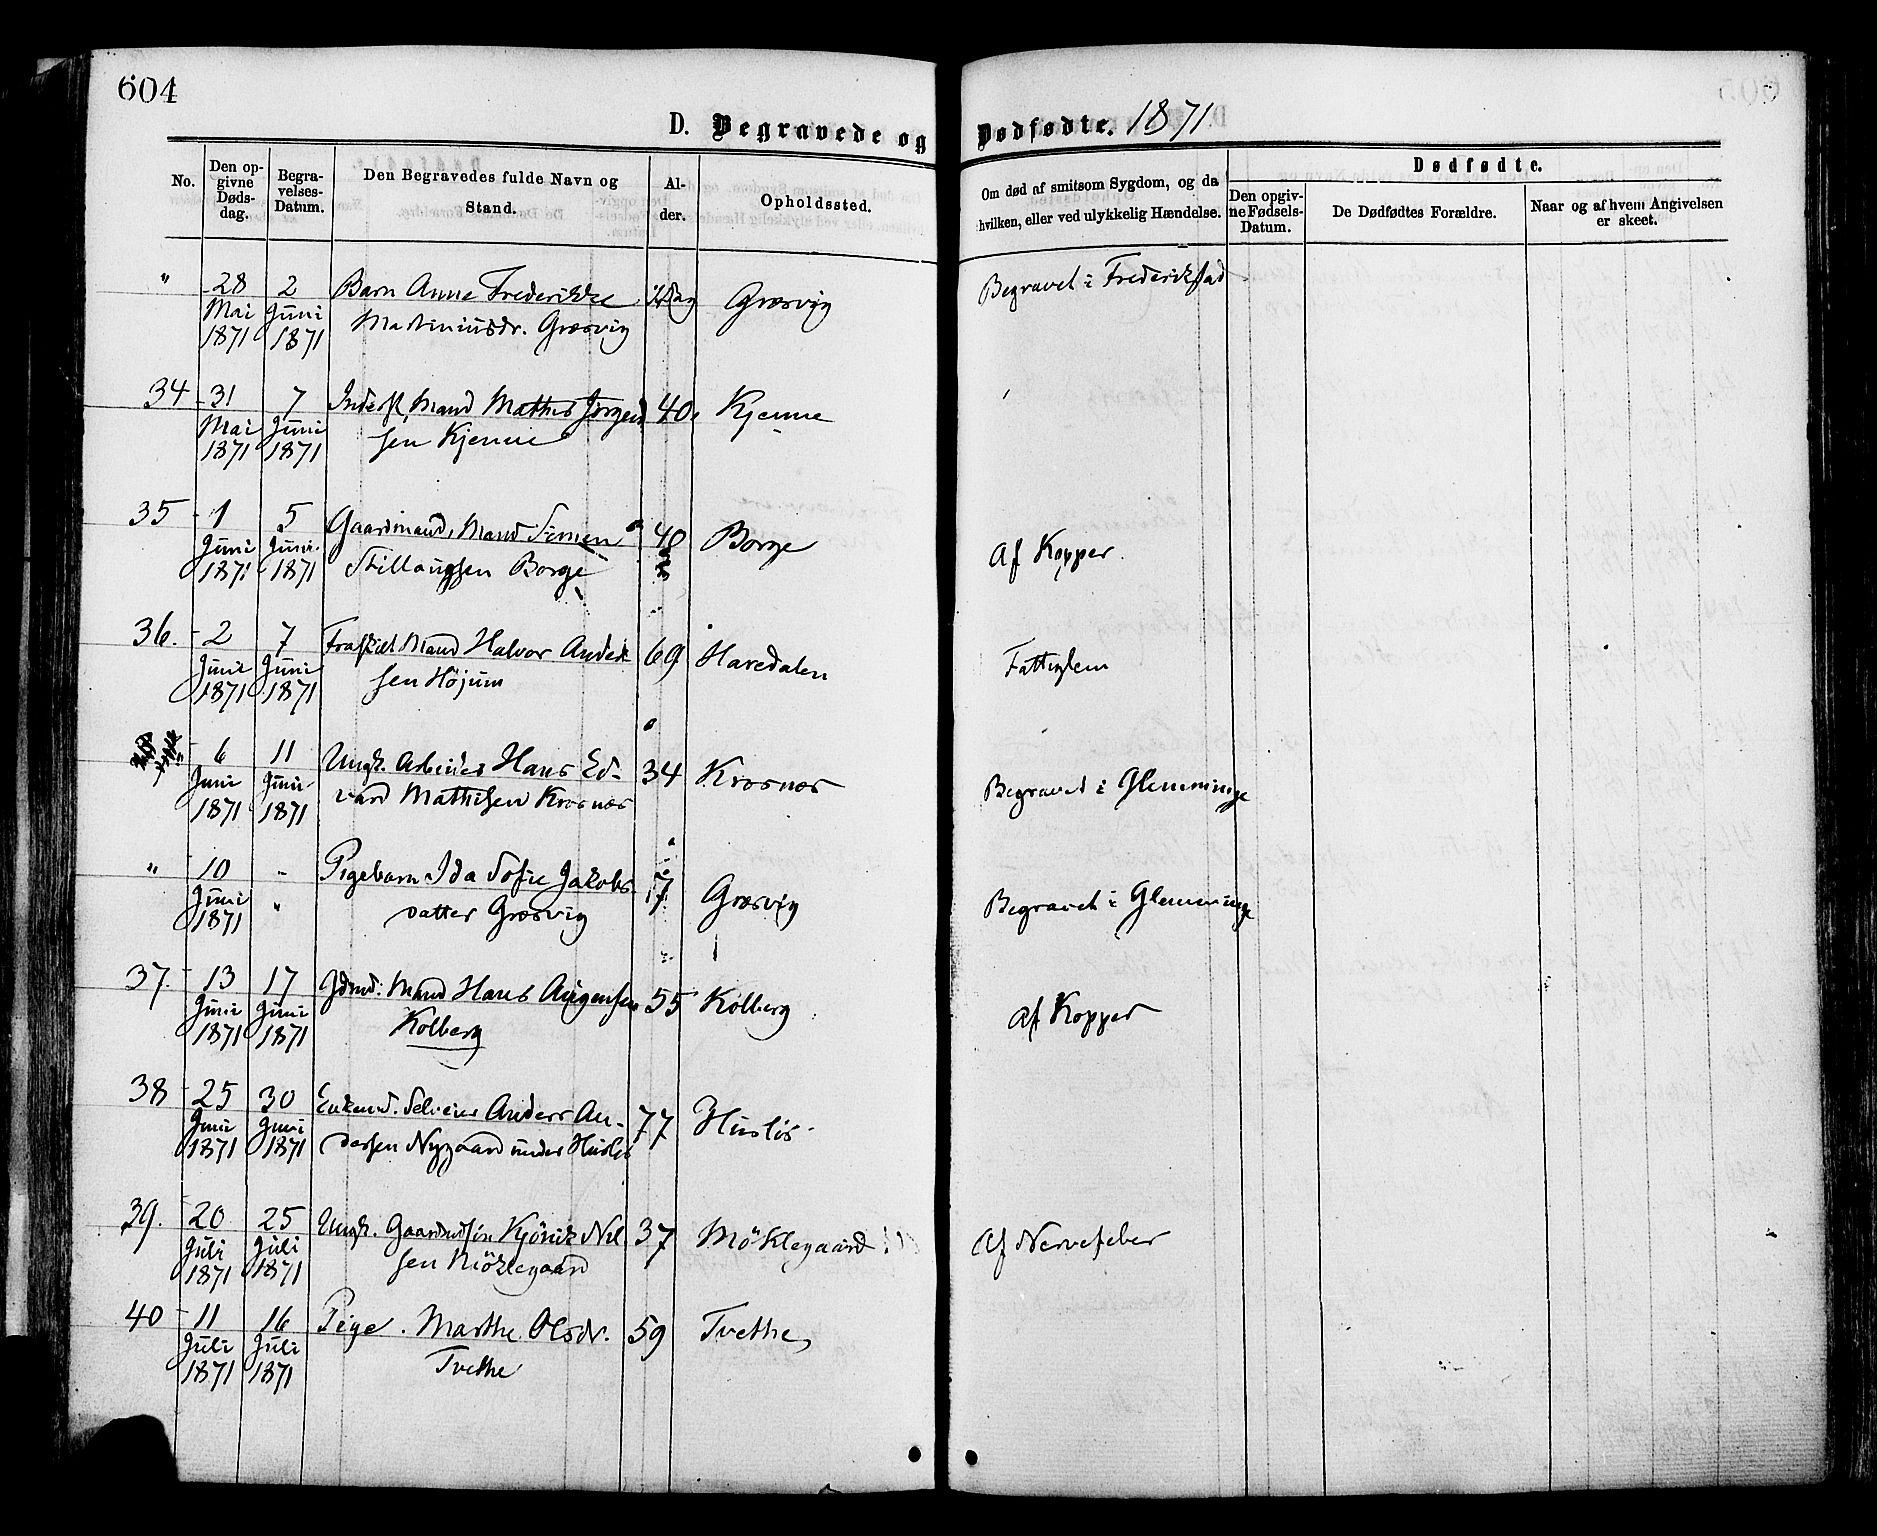 604
D. Begravede og Dødfødte. 1871.
No.
Den op-
givne
Døds-
dag.
Begra-
velses-
Datum.
Den Begravedes fulde Navn og
Stand.
Al-
der.
Opholdssted.
Om død af smitsom Sygdom, og da
hvilken, eller ved ulykkelig Hændelse.
Dødfødte.
Den opgiv-
ne Fødsels-
Datum.
De Dødfødtes Forældre.
Naar og af hvem Angivelsen
er skeet.
" 28 2 Barn Anne Frederikke Græsvig Begravet i Frederikstad
Mai Juni Martiniusdr. Græsvig
1871 1871
34 31 7 Inderst, Mand Mathis Jörgen 40 Kjenne
Mai Juni sen Kjenne
1871 1871
35 1 5 Gaardmand, Mand Simen 40 Borge Af Kopper.
Juni Juni Stillaugsen Borge
1871 1871
36. 2 7 Fraskilt Mand Halvor Ander 69 Haredalen Fattiglem
Juni Juni sen Höjum
1871 1871
6 11 Ungk. Arbeider Hans Ed- 34 Krosnæs Begravet i Glemminge
Juni Juni vard Mathisen Krosnæs
1871 1871
" 10 - Pigebarn Ida Sofie Jakobs- 17 Græsvig Begravet i Glemminge
Juni " datter Græsvig
1871
37. 13 17 Gdmd. Mand Hans Augensen 55 Kolberg Af Kopper
Juni Juni Kolberg
1871 1871
38 25 30 Enkemd. Selveier Anders An- 77 Huslös
Juni Juni dersen Nygaard under Huslös
1871 1871
39. 20 25 Ungk. Gaardmdsön Kjönik Nil 37 Möklegaard Af Nervefeber
Juli Juli sen Möklegaard
1871 1871
40 11 16 Pige. Marthe Olsdr. 59 Tvethe
Juli Juli Tvethe
1871 1871